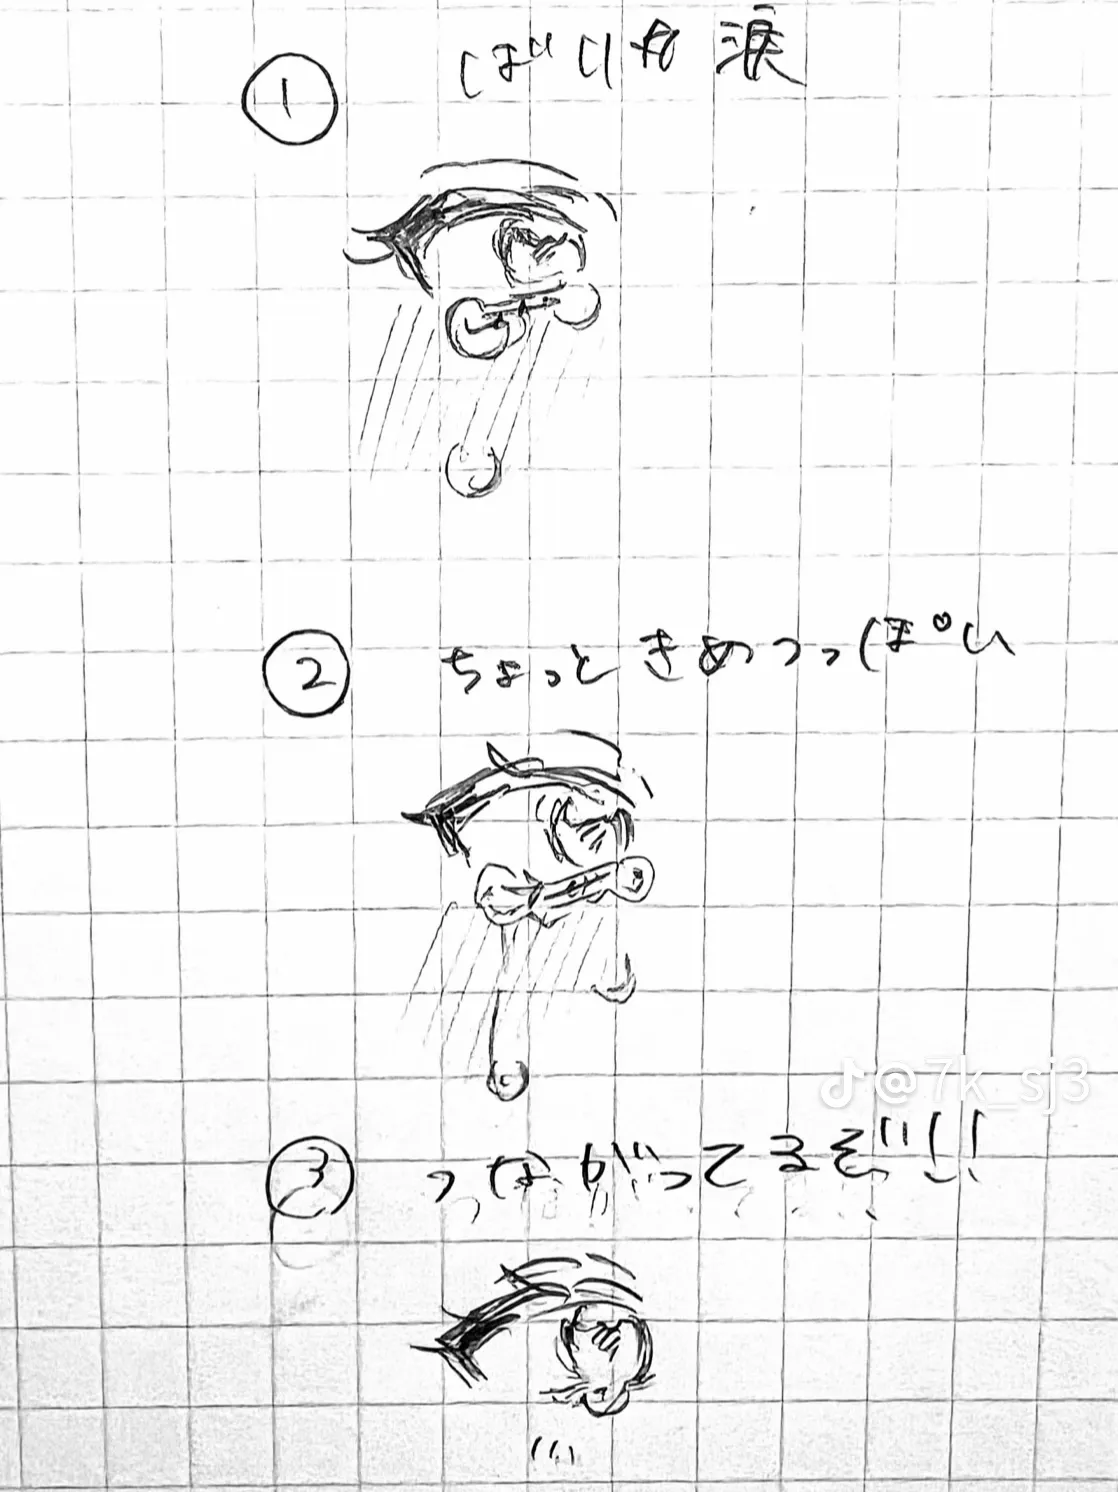 ① ばりな涙
② ちょっときめつっぽい
@7k_sj3
③ つながってるぞ!!